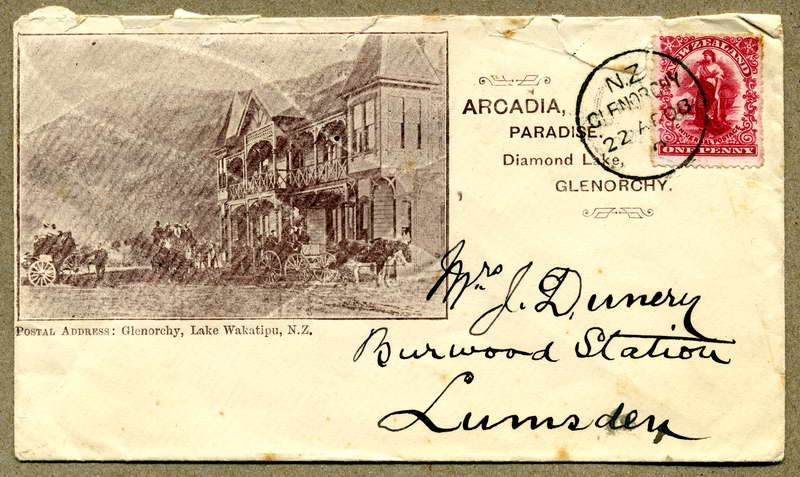 ARCADIA,
PARADISE.
Diamond Lake,
GLENORCHY.
N.Z
GLENORCHY
22 AP 08
NEW ZEALAND
UNIVERSAL POSTAGE
ONE PENNY
POSTAL ADDRESS: Glenorchy, Lake Wakatipu, N.Z.
Mrs J. D.
Burwood Station
Lumsden